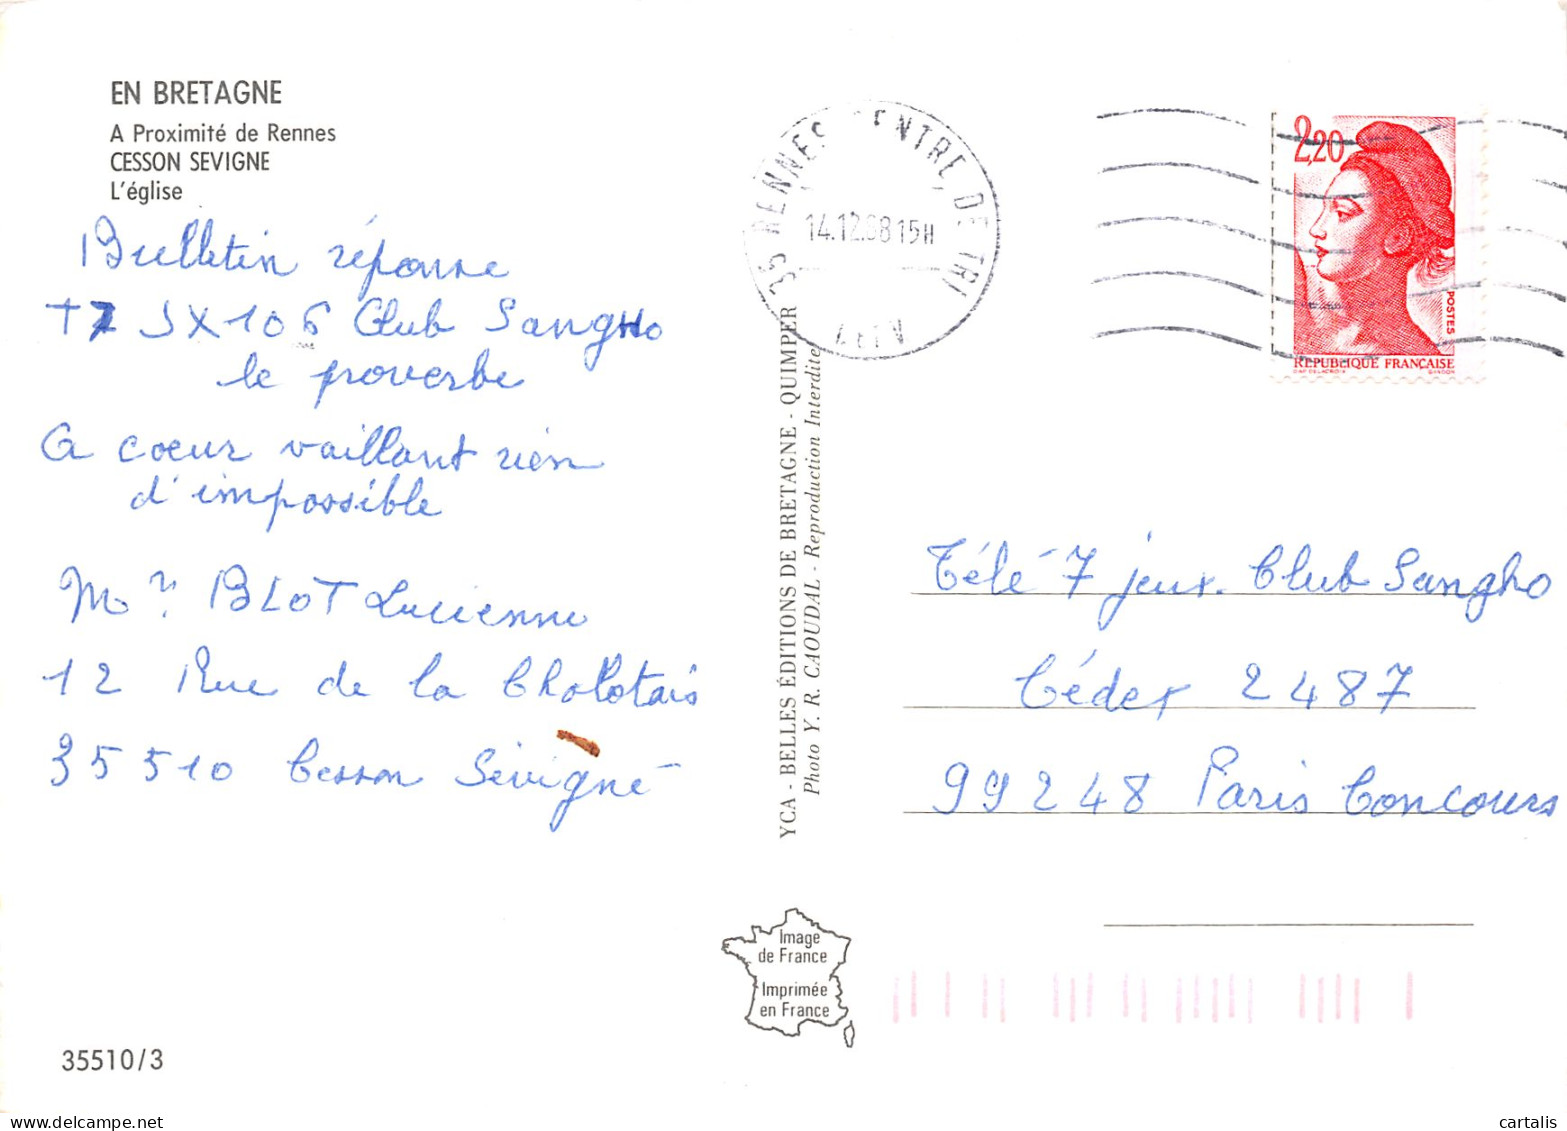 EN BRETAGNE
A Proximité de Rennes
CESSON SEVIGNE
L'église
Bulletin réponse
T7 JX106 Club Sangho
le proverbe
A coeur vaillant rien
d'impossible
Mr. BLOT Lucienne
12 Rue de la Chalotais
35510 Cesson Sévigné
35510/3
YCA - BELLES ÉDITIONS DE BRETAGNE - QUIMPER
Photo Y. R. CAOUDAL - Reproduction Interdite
Image
de France
Imprimée
en France
35 RENNES CENTRE DE TRI
14.12.88 15H
2,20
POSTES
REPUBLIQUE FRANÇAISE
Télé 7 jeux. Club Sangho
Cédex 2487
99248 Paris Concours
cartalis